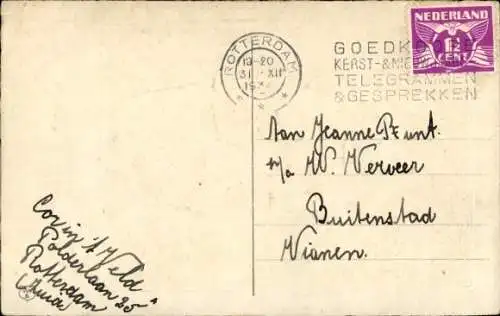 ROTTERDAM
13-20
31 XII
19
GOEDKOOPE
KERST-& NIEUWJAARS
TELEGRAMMEN
& GESPREKKEN
NEDERLAND
1½
CENT
Aan Jeanne Punt.
p/a W. Verveer
Buitenstad
Vianen.
Cor in 't Veld
Polderlaan 25
Rotterdam
(Zuid)